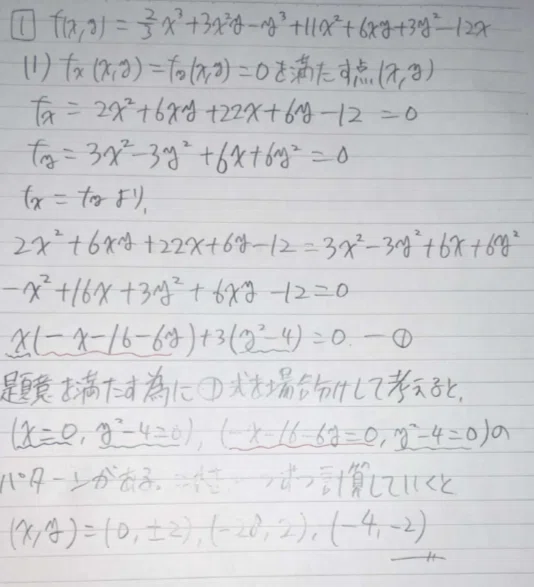 ① f(x,y) = 2/3 x³+3x²y−y³+11x²+6xy+3y²−12x
(1) fx(x,y)=fy(x,y)=0を満たす点(x,y)
fx = 2x²+6xy+22x+6y−12 = 0
fy = 3x²−3y²+6x+6y² = 0
fx = fy より,
2x²+6xy+22x+6y−12 = 3x²−3y²+6x+6y²
−x²+16x+3y²+6xy−12=0
x(−x−16−6y)+3(y²−4)=0. —①
題意を満たす為に①式を場合分けして考えると,
(x=0, y²−4=0), (−x−16−6y=0, y²−4=0)の
パターンがある。 一つずつ計算していくと
(x,y)=(0,±2),(−28,2),(−4,−2)